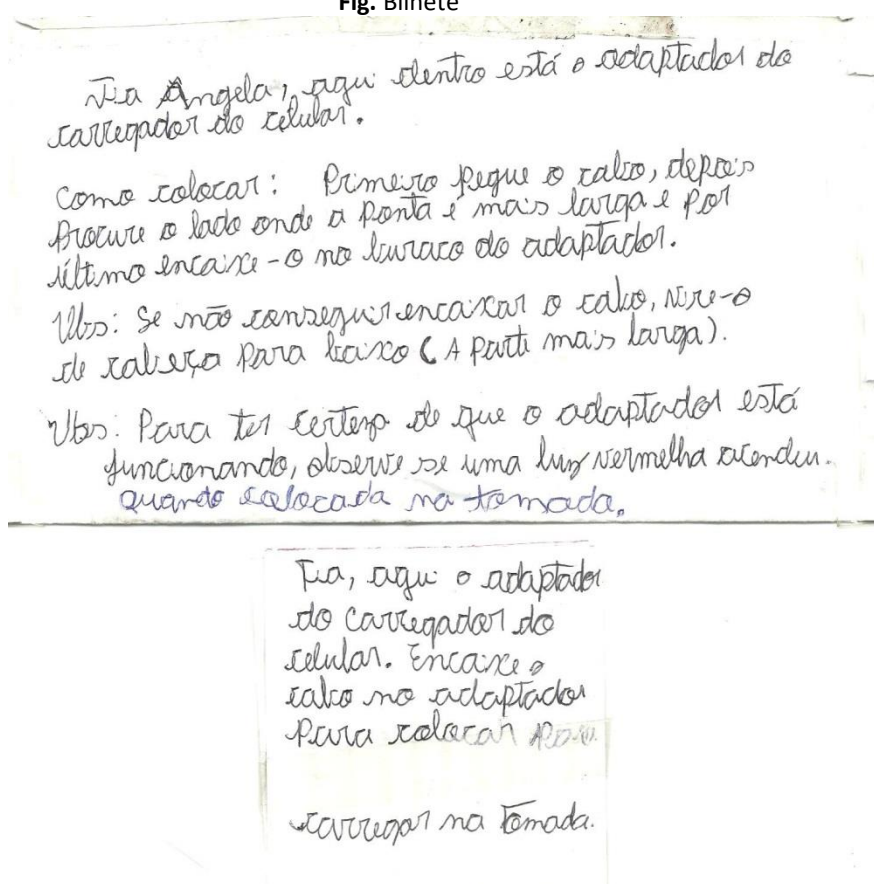 Fig. Bilhete
Tia Angela, aqui dentro está o adaptador do
carregador do celular.
Como colocar: Primeiro pegue o cabo, depois
Procure o lado onde a Ponta é mais larga e por
último encaixe-o no buraco do adaptador.
Obs: Se não conseguir encaixar o cabo, vire-o
de cabeça Para baixo (A parte mais larga).
Obs: Para ter certeza de que o adaptador está
funcionando, observe se uma luz vermelha acendeu.
quando colocada na tomada.
Tia, aqui o adaptador
do carregador do
celular. Encaixe o
cabo no adaptador
Para colocar
carregar na Tomada.